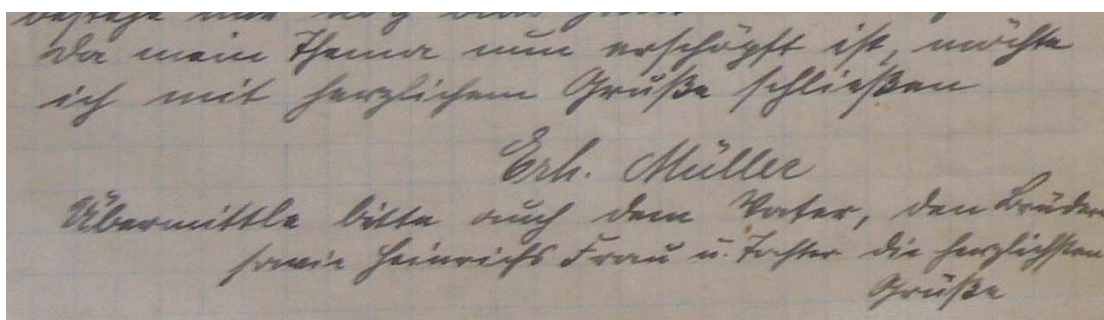 Da mein Thema nun erschöpft ist, möchte
ich mit herzlichem Gruße schließen
Erh. Müller
Übermittle bitte auch dem Vater, den Brüdern
sowie Heinrichs Frau u. Tochter die herzlichsten
Grüße